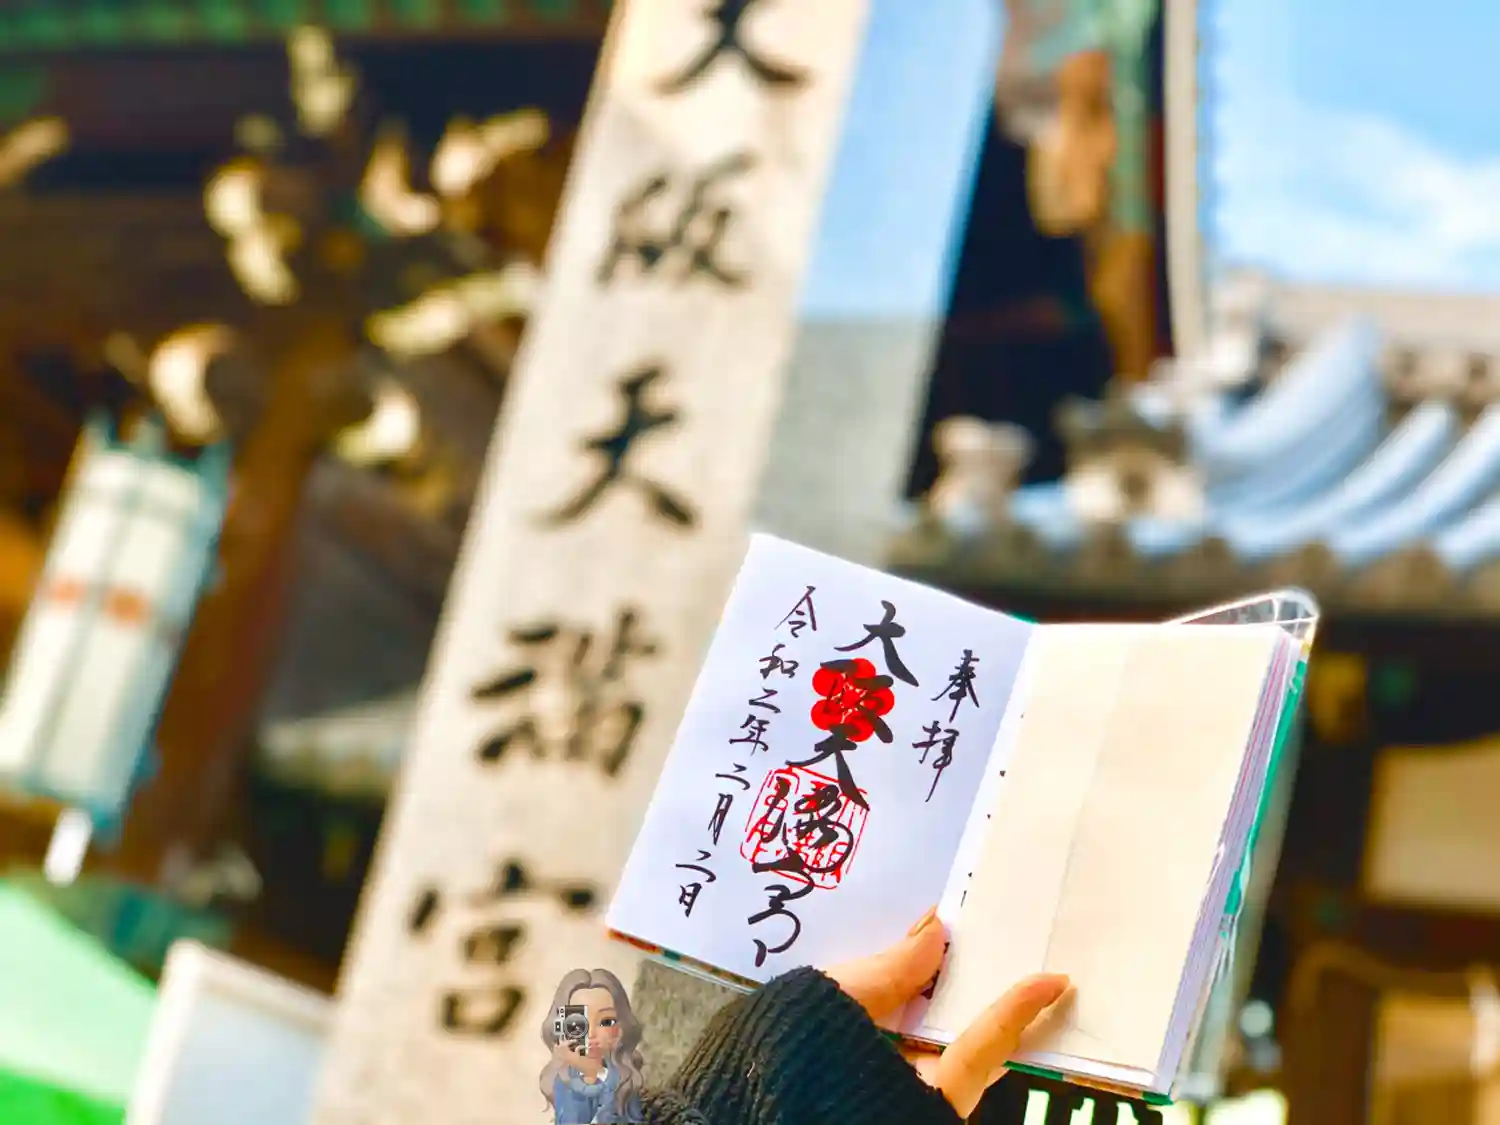 大阪天満宮
奉拝
大阪天満宮
令和二年二月二日